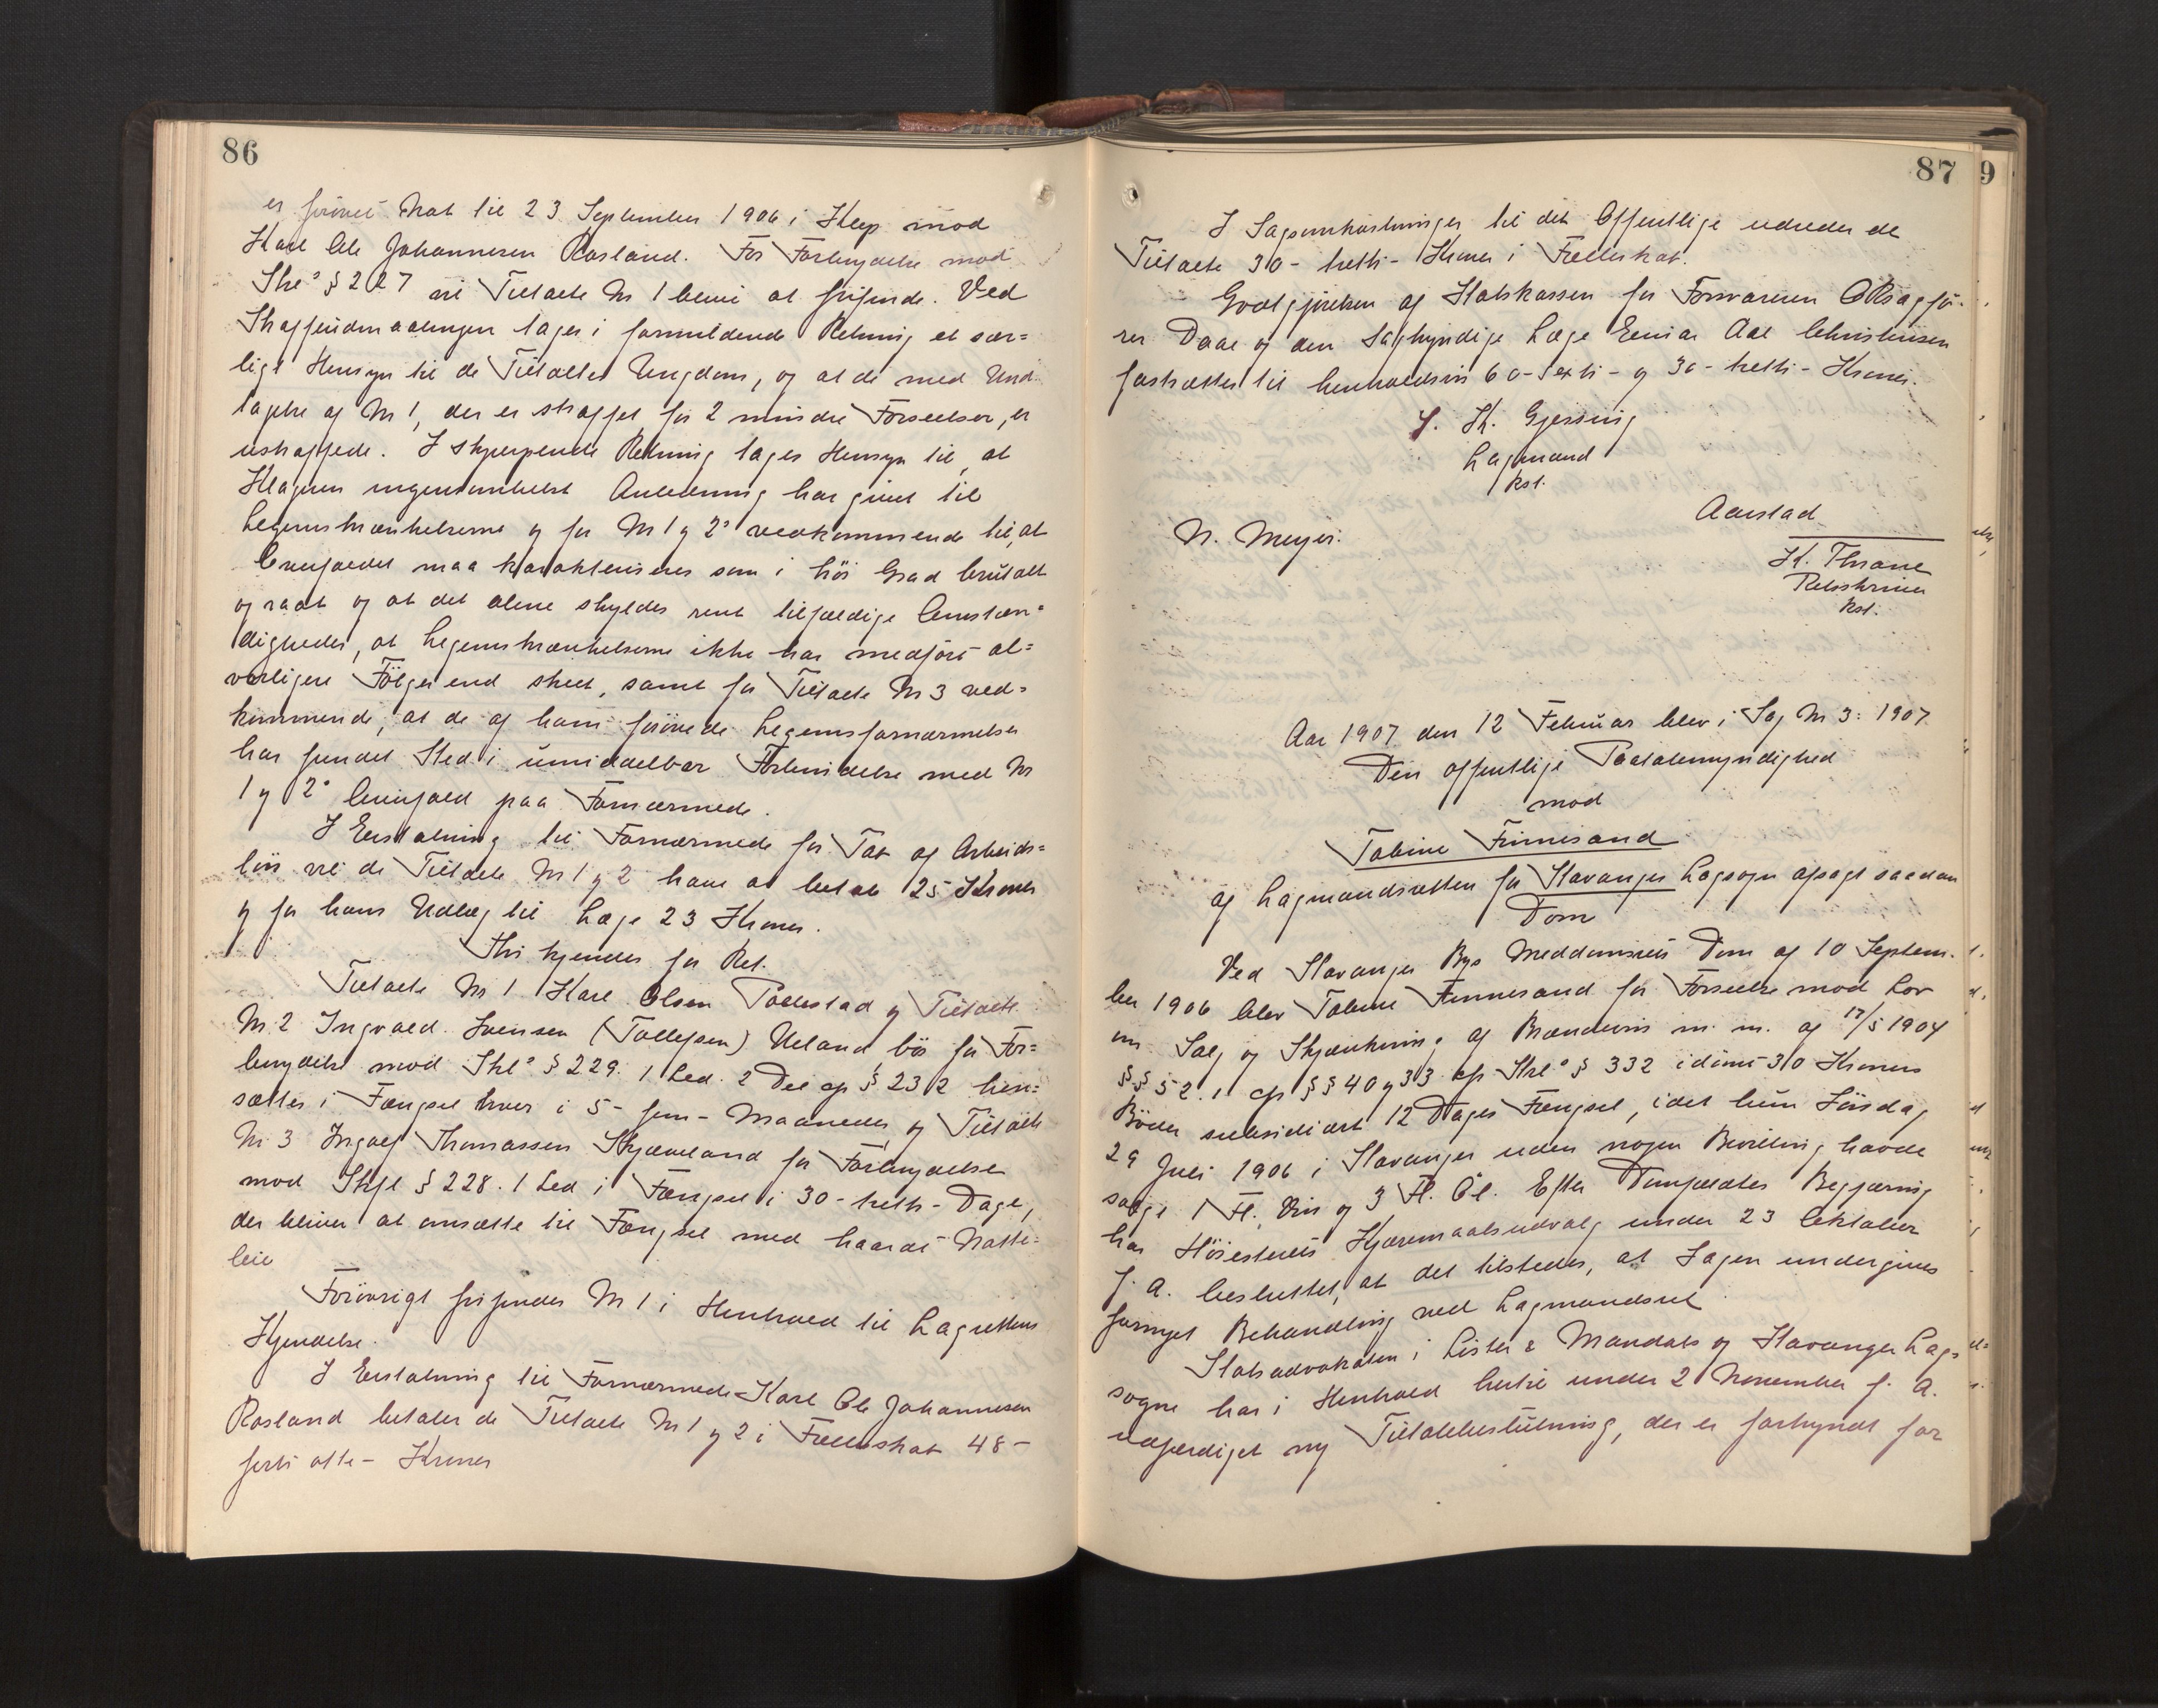 86
er forövet Nat til 23 September 1906 i Klep mod
Karl Ole Johannesen Rosland. For Forbrydelse mod
Strl § 227 vil Tiltalte Nr 1 blive at frifinde. Ved
Straffeudmaalingen tages i formildende Retning et sær=
ligt Hensyn til de Tiltaltes Ungdom, og at de med Und=
tagelse af Nr 1, der er straffet for 2 mindre Forseelser, er
ustraffede. I skjerpende Retning tages Hensyn til, at
Klageren ingensomhelst Anledning har givet til
Legemskrænkelserne og for Nr 1 og 2s vedkommende til, at
Overfaldet maa karakteriseres som i höi Grad brutalt
og raat og at det alene skyldes rent tilfældige Omstæn=
digheder, at Legemskrænkelserne ikke har medfört al=
vorligere Fölger end skeet, samt for Tiltalte Nr 3 ved=
kommende, at de af ham forövede Legemsfornærmelser
har fundet Sted i umiddelbar Forbindelse med Nr
1 og 2s Overfald paa Fornærmede.
I Erstatning til Fornærmede for Tab af Arbeids=
lön vil de Tiltalte Nr 1 og 2 have at betale 25 Kroner
og for hans Udlæg til Læge 23 Kroner.
Thi kjendes for Ret.
Tiltalte Nr 1 Karl Olsen Pollestad og Tiltalte
Nr. 2 Ingvald Svensen (Tollefsen) Ueland bör for For=
brydelse mod Strl § 229. 1 Led. 2 Del cfr § 232 hen=
sættes i Fængsel hver i 5 - fem - Maaneder og Tiltalte
Nr 3 Ingolf Thomassen Skjæveland for Forbrydelse
mod Strfl § 228. 1 Led i Fængsel i 30 - tretti - Dage,
der bliver at omsætte til Fængsel med haardt Natte=
leie
Forövrigt frifindes Nr 1 i Henhold til Lagrettens
Kjendelse.
I Erstatning til Fornærmede Karl Ole Johannesen
Rosland betaler de Tiltalte Nr 1 og 2 i Fællesskab 48 -
forti otte - Kroner
87
9
I Sagsomkostninger til det Offentlige udreder de
Tiltalte 30 - tretti - Kroner i Fælleskab.
Godtgjörelsen af Statskassen for Forsvareren ORsagfö=
rer Daae og den sagkyndige Læge Einar Aal Christensen
fastsættes til henholdsvis 60 - sexti - og 30 - tretti - Kroner.
J. K. Gjessing
Lagmand
kst.
N. Meyer.
Aarstad
K. Thrane
Retsskriver
kst.
Aar 1907 den 12 Februar blev i Sag Nr 3: 1907
Den offentlige Paatalemyndighed
mod
Tobine Finnesand
af Lagmandsretten for Stavanger Lagsogn afsagt saadan
Dom
Ved Stavanger Bys Meddomsrets Dom af 10 Septem=
ber 1906 blev Tobine Finnesand for Forseelse mod Lov
om Salg og Skjænkning af Brændevin m. m. af 17/5 1904
§§ 52. 1 cfr §§ 40 og 33 cfr Strl § 332 idömt 30 Kroners
Böder subsidiært 12 Dages Fængsel, idet hun Söndag
29 Juli 1906 i Stavanger uden nogen Bevilling havde
solgt 1 Fl. Vin og 3 Fl. Öl. Efter Domfældtes Begjæring
har Höiesterets Kjæremaalsudvalg under 23 Oktober
f. A. besluttet, at det tilstedes, at Sagen undergives
fornyet Behandling ved Lagmandsret.
Statsadvokaten i Lister & Mandals og Stavanger Lag=
sogne har i Henhold hertil under 2 November f. A.
udfærdiget ny Tiltalebeslutning, der er forkyndt for